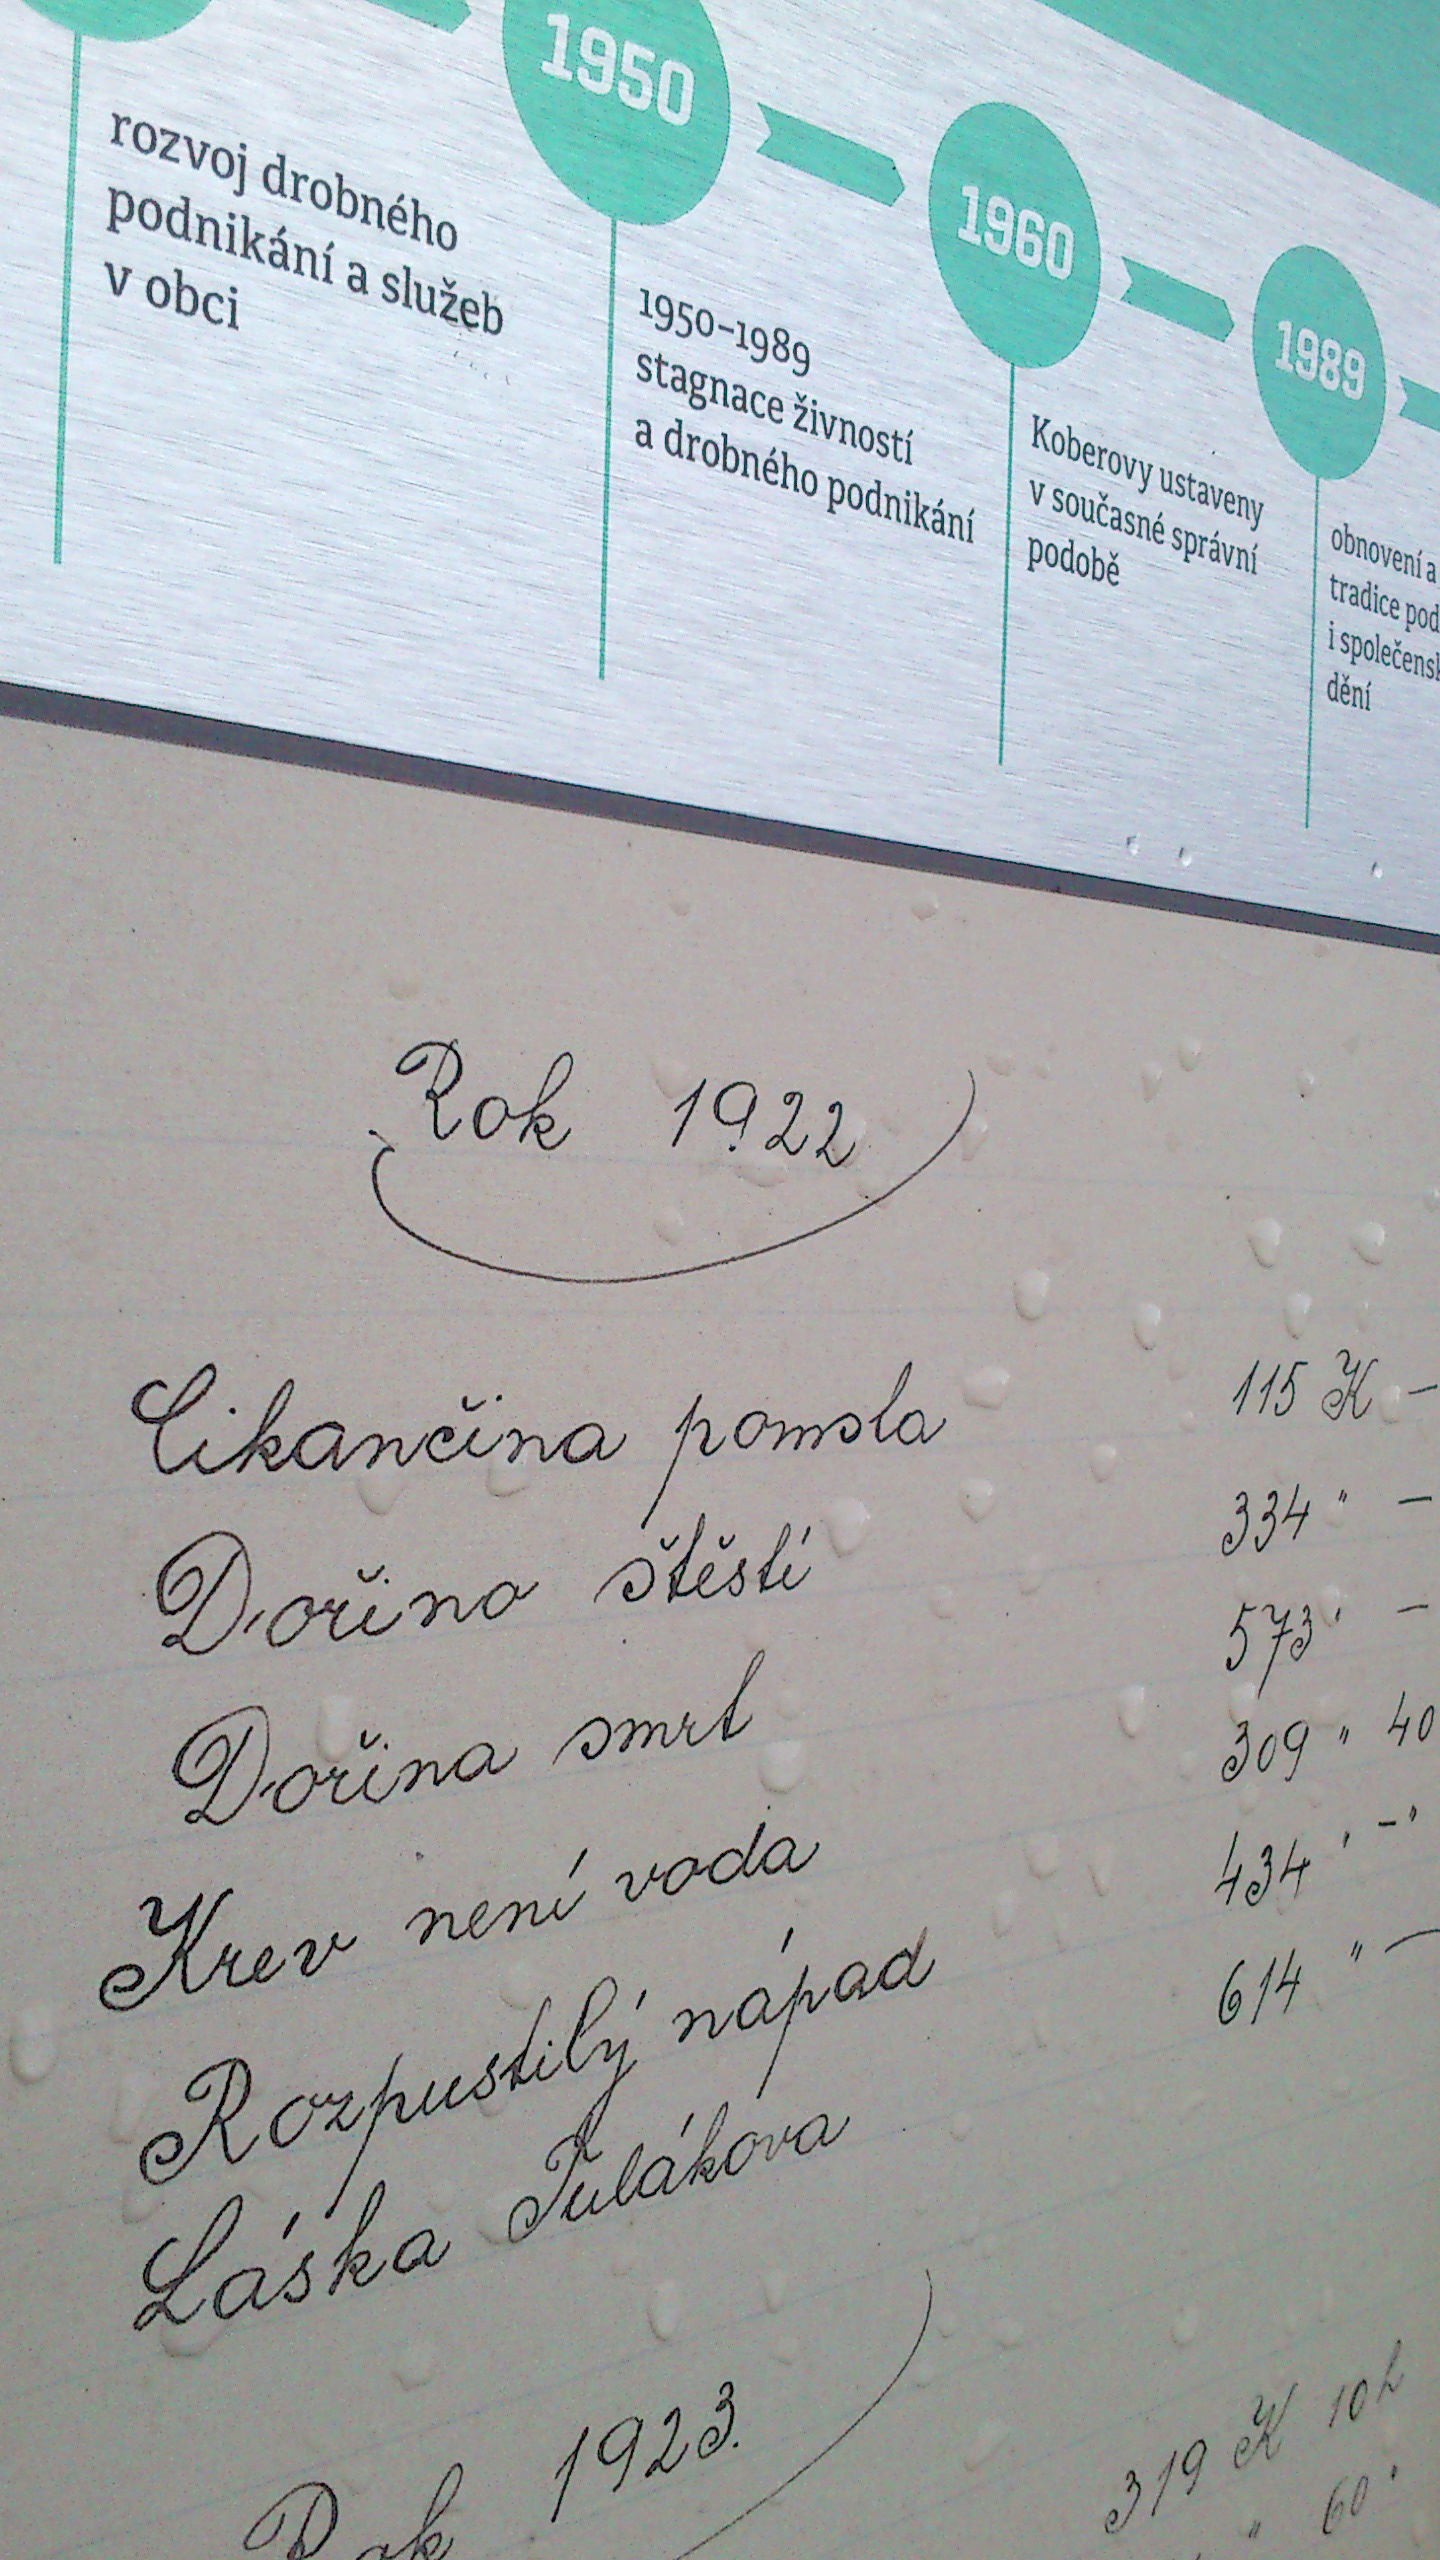 1950
1960
1989
rozvoj drobného
podnikání a služeb
v obci
1950–1989
stagnace živností
a drobného podnikání
Koberovy ustaveny
v současné správní
podobě
obnovení a
tradice pod
i společensk
dění
Rok 1922
Cikančina pomsta 115 K –
Dořino štěstí 334 " –
Dořina smrt 573 " –
Krev není voda 309 " 40
Rozpustilý nápad 434 " – "
Láska Tulákova 614 " –
Rok 1923.
319 K 10 h
" 60 "